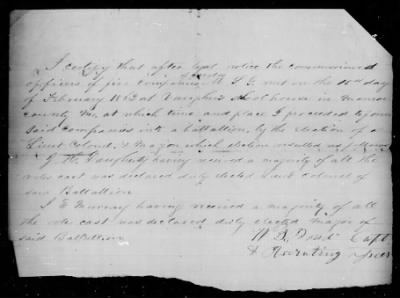 I certify that after legal notice the commissioned
officers of five companies M. S. G. met on the 10th day
of February 1862 at School house in Monroe
county Mo, at which time and place I proceeded to form
said companies into a battalion, by the election of a
Lieut Colonel, & Major which election resulted as follows
having received a majority of all the
votes cast was declared duly elected Lieut Colonel of
said Battallion
having received a majority of all
the vote cast was declared duly elected Major of
said Battallion
Capt
& Recruiting officer